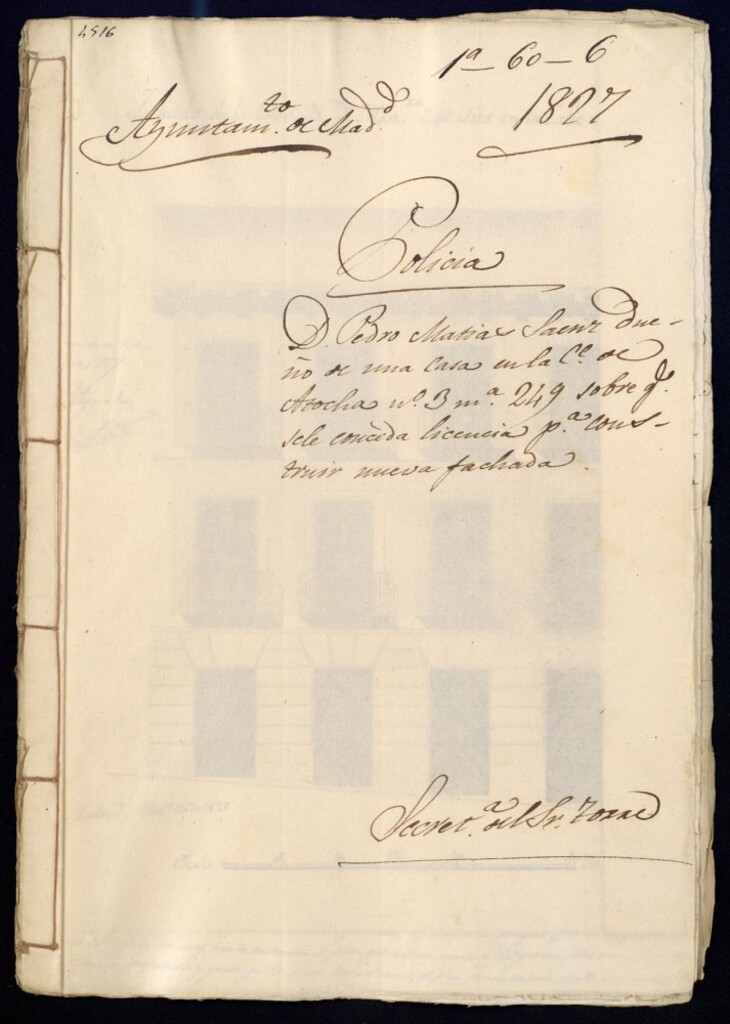 4516
1ª - 60 - 6
Ayuntam.to de Mad.d
1827
Policia
D. Pedro Matias Saenz due-
ño de una casa en la C.e de
Atocha nº. 3 m.ª 249 sobre q.e
sele conceda licencia p.ª cons-
truir nueva fachada.
Secret.ª del Sr.